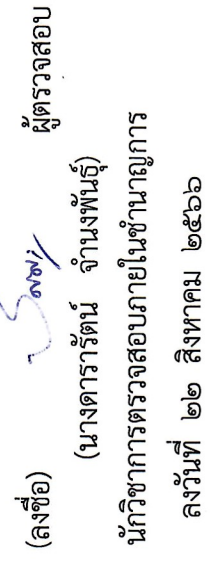 (ลงชื่อ) ผู้ตรวจสอบ
(นางดารารัตน์ จำนงพันธุ์)
นักวิชาการตรวจสอบภายในชำนาญการ
ลงวันที่ ๒๒ สิงหาคม ๒๕๖๖